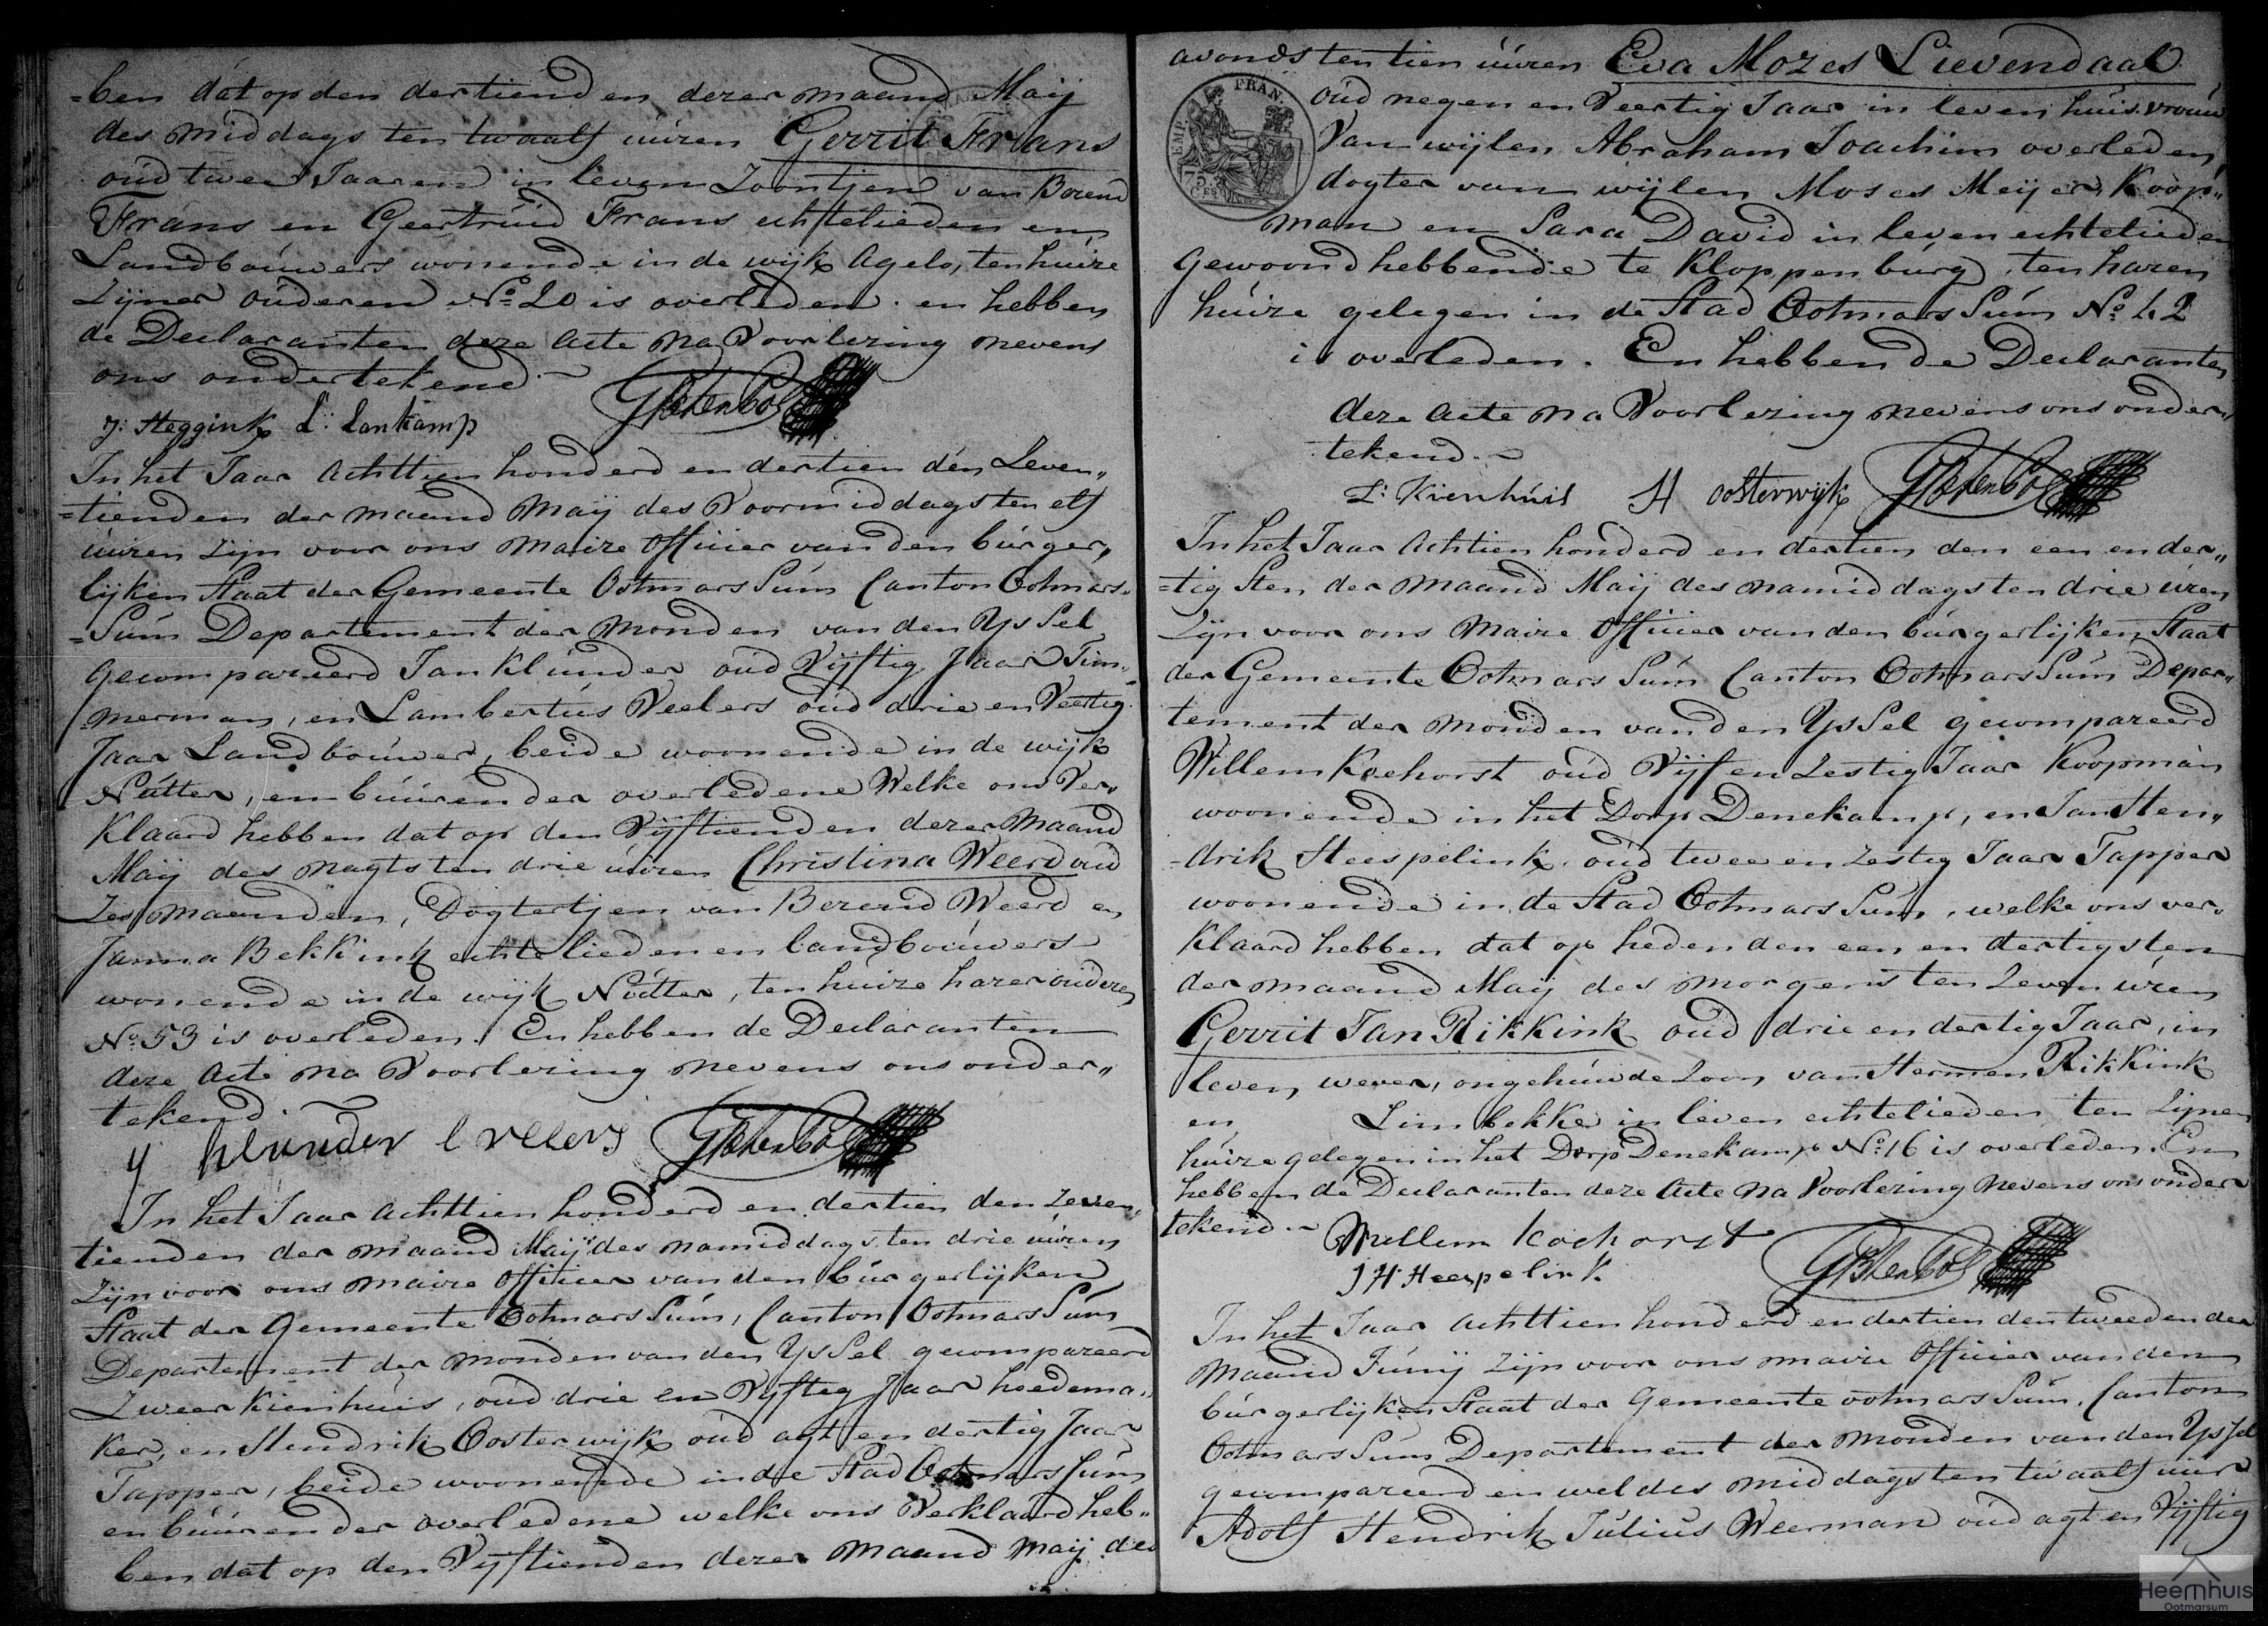 =ben dat op den dertienden dezer maand Maij
des middags ten twaalf uúren Gerrit Frans
oúd twee Jaaren in leven Zoontjen van Berend
Frans en Geertruid Frans echtelieden en
Landboúwers wonende in de wijk Agelo, ten huize
Zijner oúderen No. 20 is overleden. en hebben
de Declaranten deze Acte na Voorlezing nevens
ons ondertekend.
J: Heggink L: Lankamp
In het Jaar Achttien honderd en dertien den Zeven„
=tienden der maand Maij des Voormiddags ten elf
úúren zijn voor ons Maire Officier van den búrger„
lijken Staat der Gemeente Ootmarssúm Canton Ootmars„
=súm Departement der Monden van den Yssel
gecompareerd Jan Klúnder oúd Vijftig Jaar Tim„
=merman, en Lambertús Veelers oúd drie en Veertig
Jaar Landboúwer, beide woonende in de wijk
Nútter, en búúren der overledene Welke ons Ver„
Klaard hebben dat op den Vijftienden dezer Maand
Maij des nagts ten drie uúren Christina Weerd oúd
Zes maanden, Dogtertjen van Berend Weerd en
Janna Bekkink echtelieden en landboúwers
wonende in de wijk Nútter, ten huize harer oúderen
No. 53 is overleden. En hebben de Declaranten
deze Acte na Voorlezing nevens ons onder„
tekend.
J klunder l velers
In het Jaar Achttien honderd en dertien den zeven„
tienden der maand Maij des namiddags ten drie uúren
Zijn voor ons maire Officier van den búrgerlijken
Staat der Gemeente Ootmarssúm, Canton Ootmarssúm
Departement der monden van den Yssel gecompareerd
Zweer Kienhúis, oúd drie en Vijftig Jaar hoedema„
ker, en Hendrik Oosterwijk oúd agt en dertig Jaar
Tapper, beide woonende in de Stad Ootmarssúm
en búúren der overledene welke ons Verklaard heb„
ben dat op den Vijftienden dezer Maand Maij des
avonds ten tien úúren Eva Mozes Lievendaal
FRAN.
oúd negen en Veertig Jaar in leven húisvroúw
Van wijlen Abraham Joachim overleden,
75
dogter van wijlen Moses Meijer, Koop„
man en Sara David in leven echtelieden
Gewoond hebbende te Kloppenbúrg, ten haren
húize gelegen in de Stad Ootmarssúm No. 42
is overleden. En hebben de Declaranten
deze Acte na Voorlezing nevens ons onder„
tekend.
Z: Kienhúis H oosterwijk
In het Jaar Achtien honderd en dertien den een en der„
=tigsten der Maand Maij des namiddags ten drie úren
Zijn voor ons Maire Officier van den búrgerlijken Staat
der Gemeente Ootmarssúm Canton Ootmarssúm Depar„
tement der monden van den Yssel gecompareerd
Willem Koehorst oúd Vijf en Zestig Jaar Koopman
woonende in het Dorp Denekamp, en Jan Hen„
=drik Heespelink, oúd twee en zestig Jaar Tapper
woonende in de Stad Ootmarssúm, welke ons ver„
Klaard hebben dat op heden den een en dertigsten
der maand Maij des morgens ten zeven úren
Gerrit Jan Rikkink oúd drie en dertig Jaar, in
leven wever, ongehúwde Zoon van Hermen Rikkink
en Limbekke in leven echtelieden ten Zijnen
húize gelegen in het Dorp Denekamp No. 16 is overleden. En
hebben de Declaranten deze Acte na Voorlezing nevens ons onder
tekend. Willem Koehorst
J H Heespelink
In het Jaar Achttien honderd en dertien den tweeden der
Maand Júnij zijn voor ons maire Officier van den
búrgerlijken Staat der Gemeente ootmarssúm, Canton
Ootmarssúm Departement der Monden van den Yssel
gecompareerd en wel des middags ten twaalf uúr
Adolf Hendrik Júliús Weerman oúd agt en Vijftig
Heemhuis
Ootmarsum